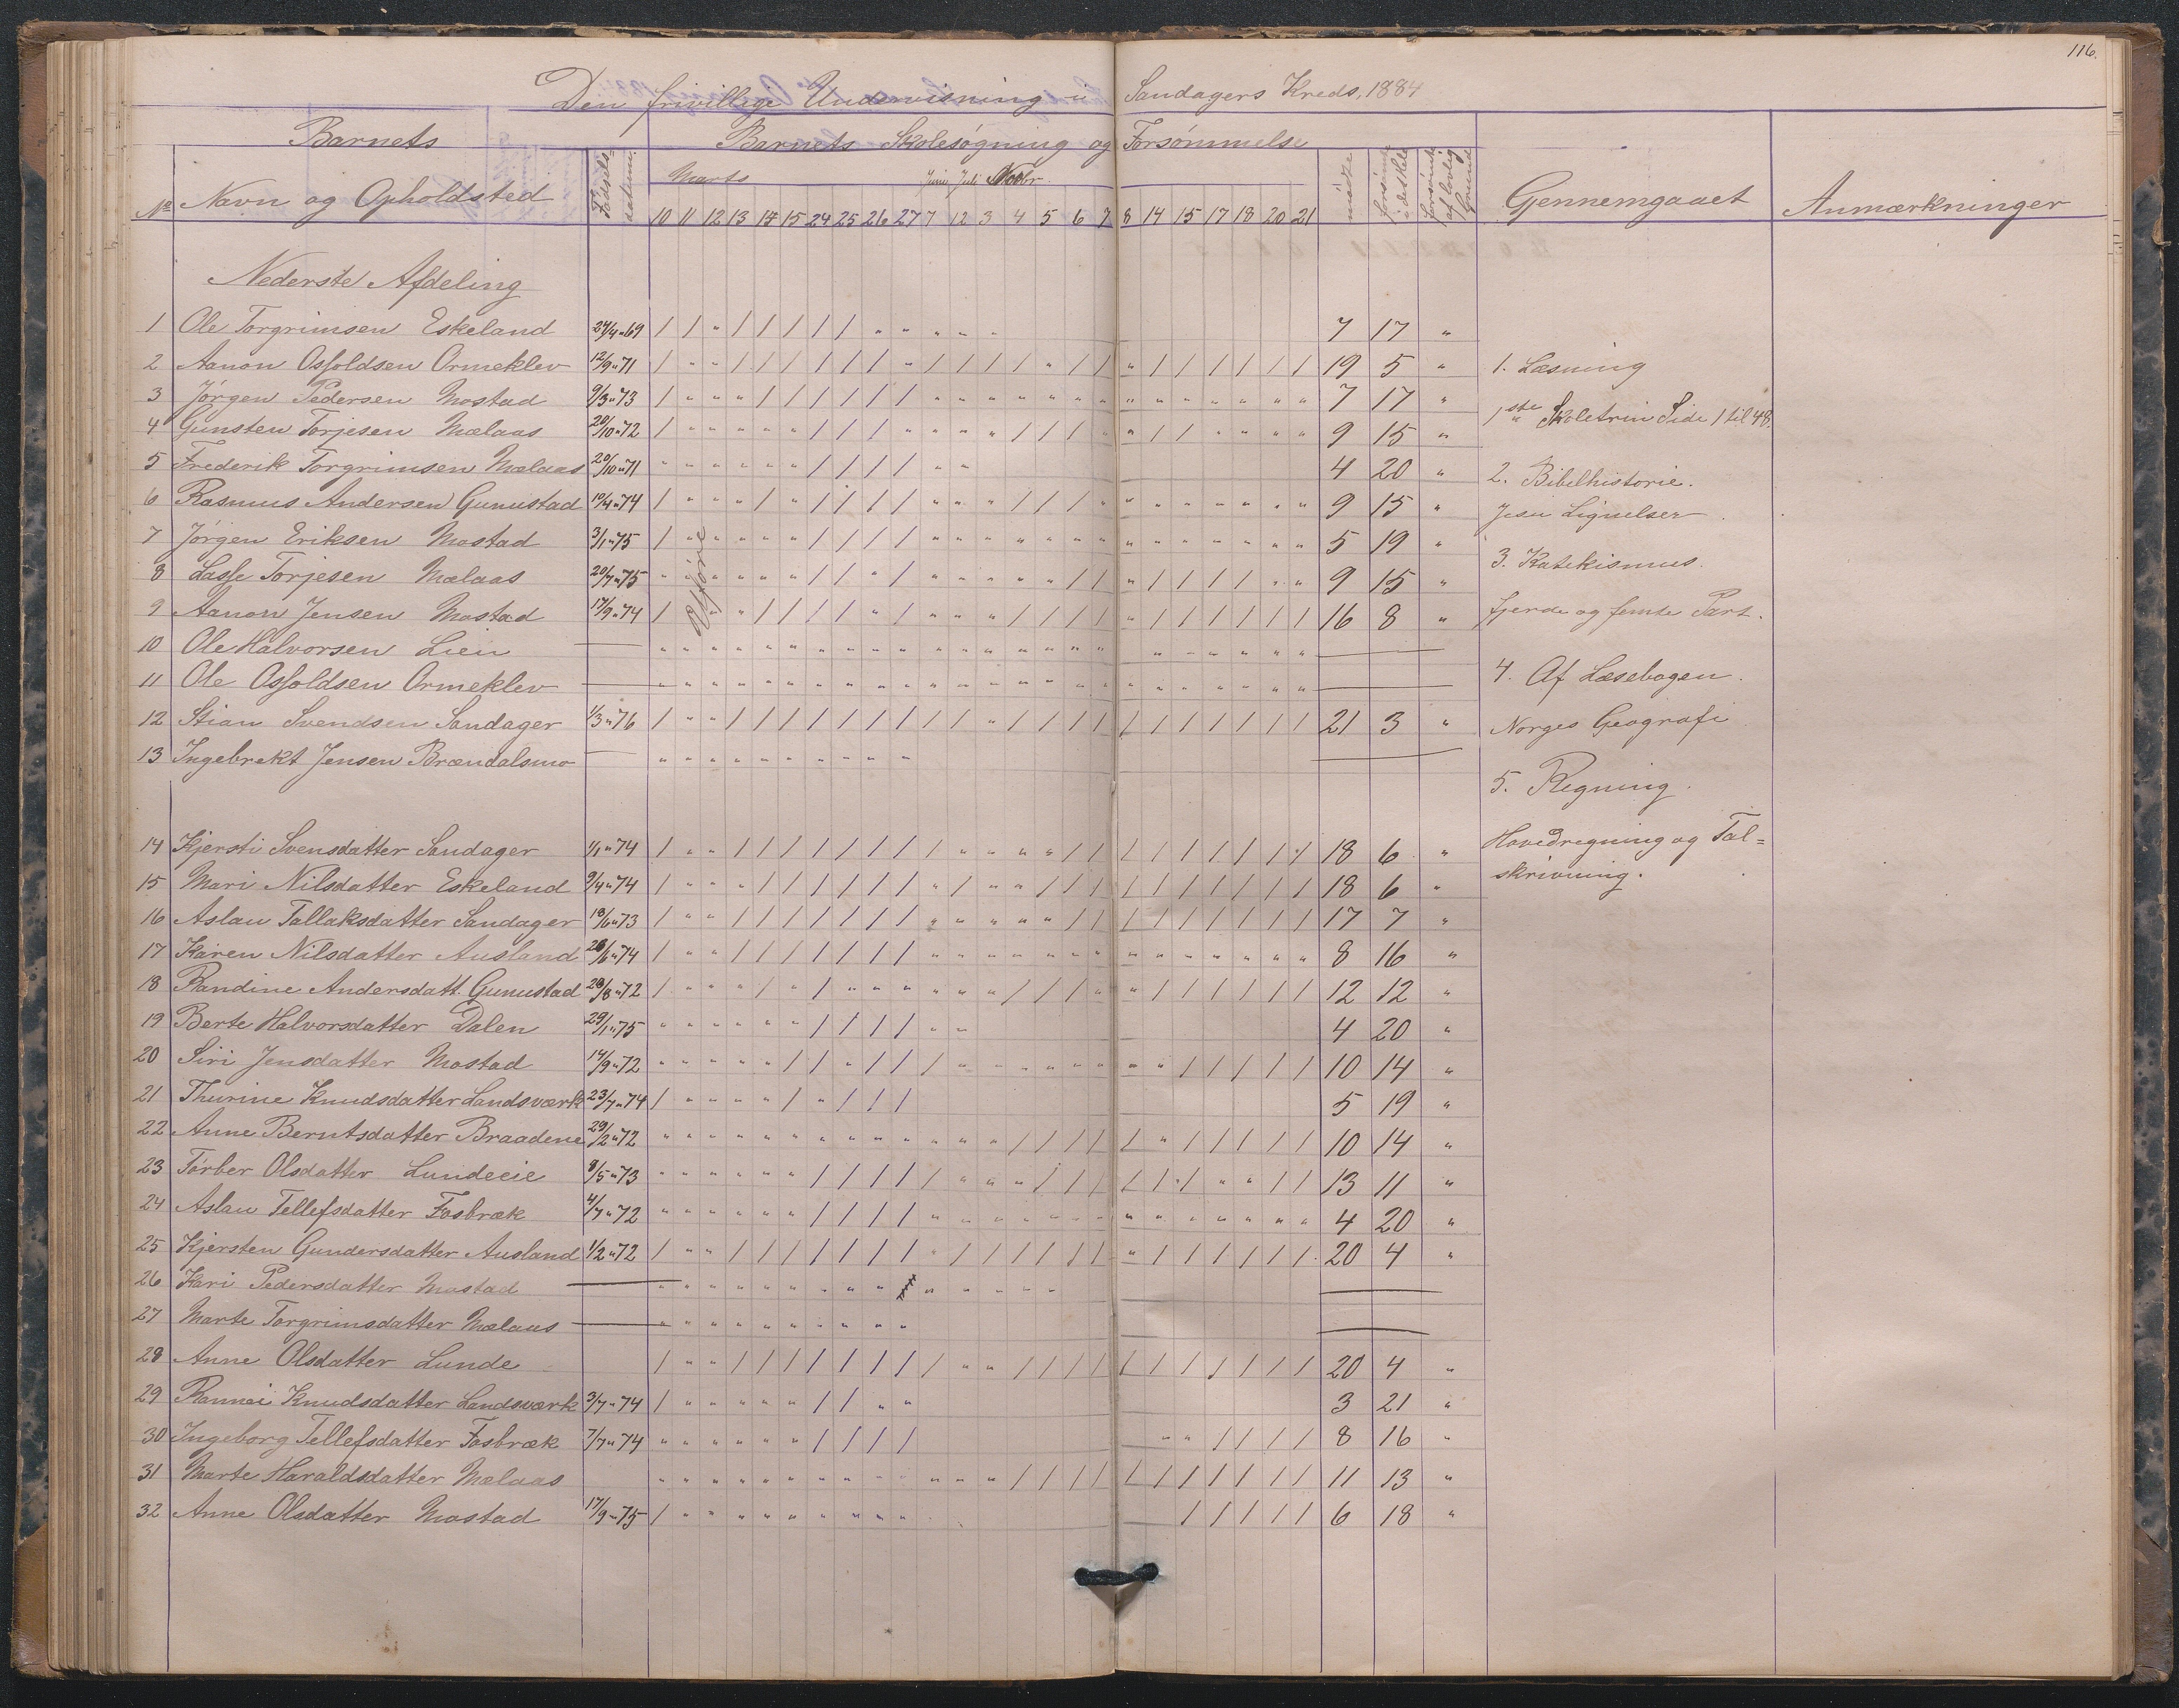 116.
Den frivillige Undervisning i Sandagers Kreds, 1884
Barnets Barnets Skolesøgning og Forsømmelse
No Navn og Opholdsted Fødsels-datum. Marts Juni Juli Novbr. mødte forsømte i det hele forsømte af lovlig Grund Gennemgaaet Anmærkninger
10 11 12 13 14 15 24 25 26 27 7 12 3 4 5 6 7 8 14 15 17 18 20 21
Nederste Afdeling
1 Ole Torgrimsen Eskeland 24/4 "69 / / " / / / / / " " " " " 7 17 "
2 Aanon Osfoldsen Ormeklev 12/9 "71 / " " / / / / / / " / / / / " / / " / / / / / / 19 5 " 1. Læsning
3 Jørgen Pedersen Mostad 9/3 "73 / " " " / / / / / / " " " " " " " " " " " " " " 7 17 "
1ste Skoletrin Side 1 til 48.
4 Gunsten Torjesen Mælaas 20/10 "72 / " " " " " / / / " " " " / / / " " / / " " " " 9 15 "
5 Frederik Torgrimsen Mælaas 20/10 "71 " " " " " " / / / / " " 4 20 " 2. Bibelhistorie.
6 Rasmus Andersen Gunustad 10/4 "74 / " " " / " / / / / " " " / / / " " " " " " " " 9 15 " Jesu Lignelser
7 Jørgen Eriksen Mostad 3/1 "75 / " " " " " / / / / " " " " " " " " " " " " " " 5 19 "
3. Katekismus.
8 Lasse Torjesen Mælaas 20/7 "75 " " " " " " / / " / " " " " " / / " / / / / " " 9 15 "
Uføre
9 Aanon Jensen Mostad 17/9 "74 / " " / / / / " / " " " / / / / " / / / / / / 16 8 " fjerde og femte Part.
10 Ole Halvorsen Lien — " " " " " " " " " " " " " " " " " " " " " " " —
11 Ole Osfoldsen Ormeklev — " " " " " " " " " " " " " " " " " " " " " " " — 4. Af Læsebogen.
12 Stian Svendsen Sandager 1/3 "76 / " " / / / / / / / / / " / / / / / / / / / / / 21 3 " Norges Geografi
13 Ingebrekt Jensen Brændalsmo — " " " " " " " " " " —
5. Regning.
14 Kjersti Svensdatter Sandager 1/1 "74 / " " / / / / / / / / " " " " / / / / / / / / / 18 6 " Hovedregning og Tal=
15 Mari Nilsdatter Eskeland 9/4 "74 / " " " / / / / / / " / " " / / / / / / / / / / 18 6 " skrivning.
16 Aslau Tallaksdatter Sandager 18/6 "73 / " " / / / / / / / " " " " " / / / / / / / / / 17 7 "
17 Karen Nilsdatter Ausland 28/6 "74 / " " / / / / / / / " " " " " " " " " " " " " " 8 16 "
18 Randine Andersdatt. Gunustad 28/8 "72 / " " " / " / " " " " " " / / / " " / / / / / / 12 12 "
19 Berte Halvorsdatter Dalen 29/1 "75 " " " " " " / / / / " " 4 20 "
20 Siri Jensdatter Mostad 14/9 "72 " " " " " / / " / / / " " " " " " " " / / / / / 10 14 "
21 Thurine Knudsdatter Landsværk 23/7 "74 / " " " " / " / / / 5 19 "
22 Anne Berntsdatter Braadene 29/2 "72 " " " " " " " " " " " " " / / / / / " / / / / / 10 14 "
23 Tørber Olsdatter Lundeeie 8/5 "73 " " " " " " / / / / / " " " / / / / / / " " / / 13 11 "
24 Aslau Tellefsdatter Fosbræk 4/7 "72 " " " " " " / / / / " " " " " " " " " " " " " " 4 20 "
25 Kjersten Gundersdatter Ausland 1/2 "72 / " " / / / / / / / " / / / / / / " / / / / / / 20 4 "
26 Kari Pedersdatter Mostad — " " " " " " " " " " " " " " —
27 Marte Torgrimsdatter Mælaas — " " " " " " " " " " —
28 Anne Olsdatter Lunde / " " / / / / / / / / " " / / / / / / / / / / / 20 4 "
29 Rannei Knudsdatter Landsværk 3/7 "74 / " " " " " / / " " 3 21 "
30 Ingeborg Tellefsdatter Fosbræk 7/7 "74 " " " " " " / / / / " " / / / / 8 16 "
31 Marte Haraldsdatter Mælaas " " " " " " " " " " " " " / / / / / / / / / / / 11 13 "
32 Anne Olsdatter Mostad 17/9 "75 / " " " " " " " " " / / / / / 6 18 "